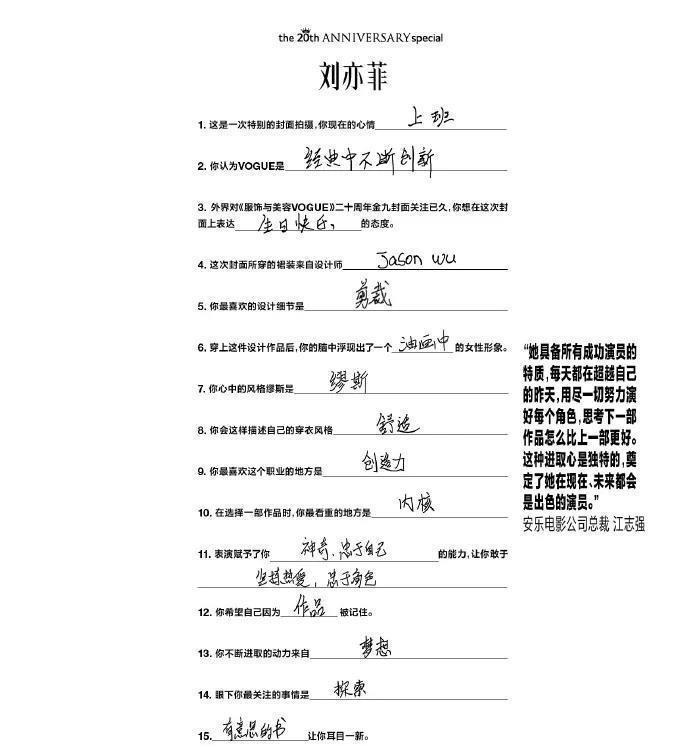 the 20th ANNIVERSARY special
刘亦菲
1. 这是一次特别的封面拍摄,你现在的心情 上班
2. 你认为VOGUE是 经典中不断创新
3. 外界对《服饰与美容VOGUE》二十周年金九封面关注已久,你想在这次封
面上表达 生日快乐, 的态度。
4. 这次封面所穿的裙装来自设计师 Jason wu
5. 你最喜欢的设计细节是 剪裁
6. 穿上这件设计作品后,你的脑中浮现出了一个 油画中 的女性形象。
7. 你心中的风格缪斯是 缪斯
8. 你会这样描述自己的穿衣风格 舒适
9. 你最喜欢这个职业的地方是 创造力
10. 在选择一部作品时,你最看重的地方是 内核
11. 表演赋予了你 神奇、忠于自己 的能力,让你敢于
坚持热爱,忠于角色
12. 你希望自己因为 作品 被记住。
13. 你不断进取的动力来自 梦想
14. 眼下你最关注的事情是 探索
15. 有意思的书 让你耳目一新。
“她具备所有成功演员的
特质,每天都在超越自己
的昨天,用尽一切努力演
好每个角色,思考下一部
作品怎么比上一部更好。
这种进取心是独特的,奠
定了她在现在、未来都会
是出色的演员。”
安乐电影公司总裁 江志强